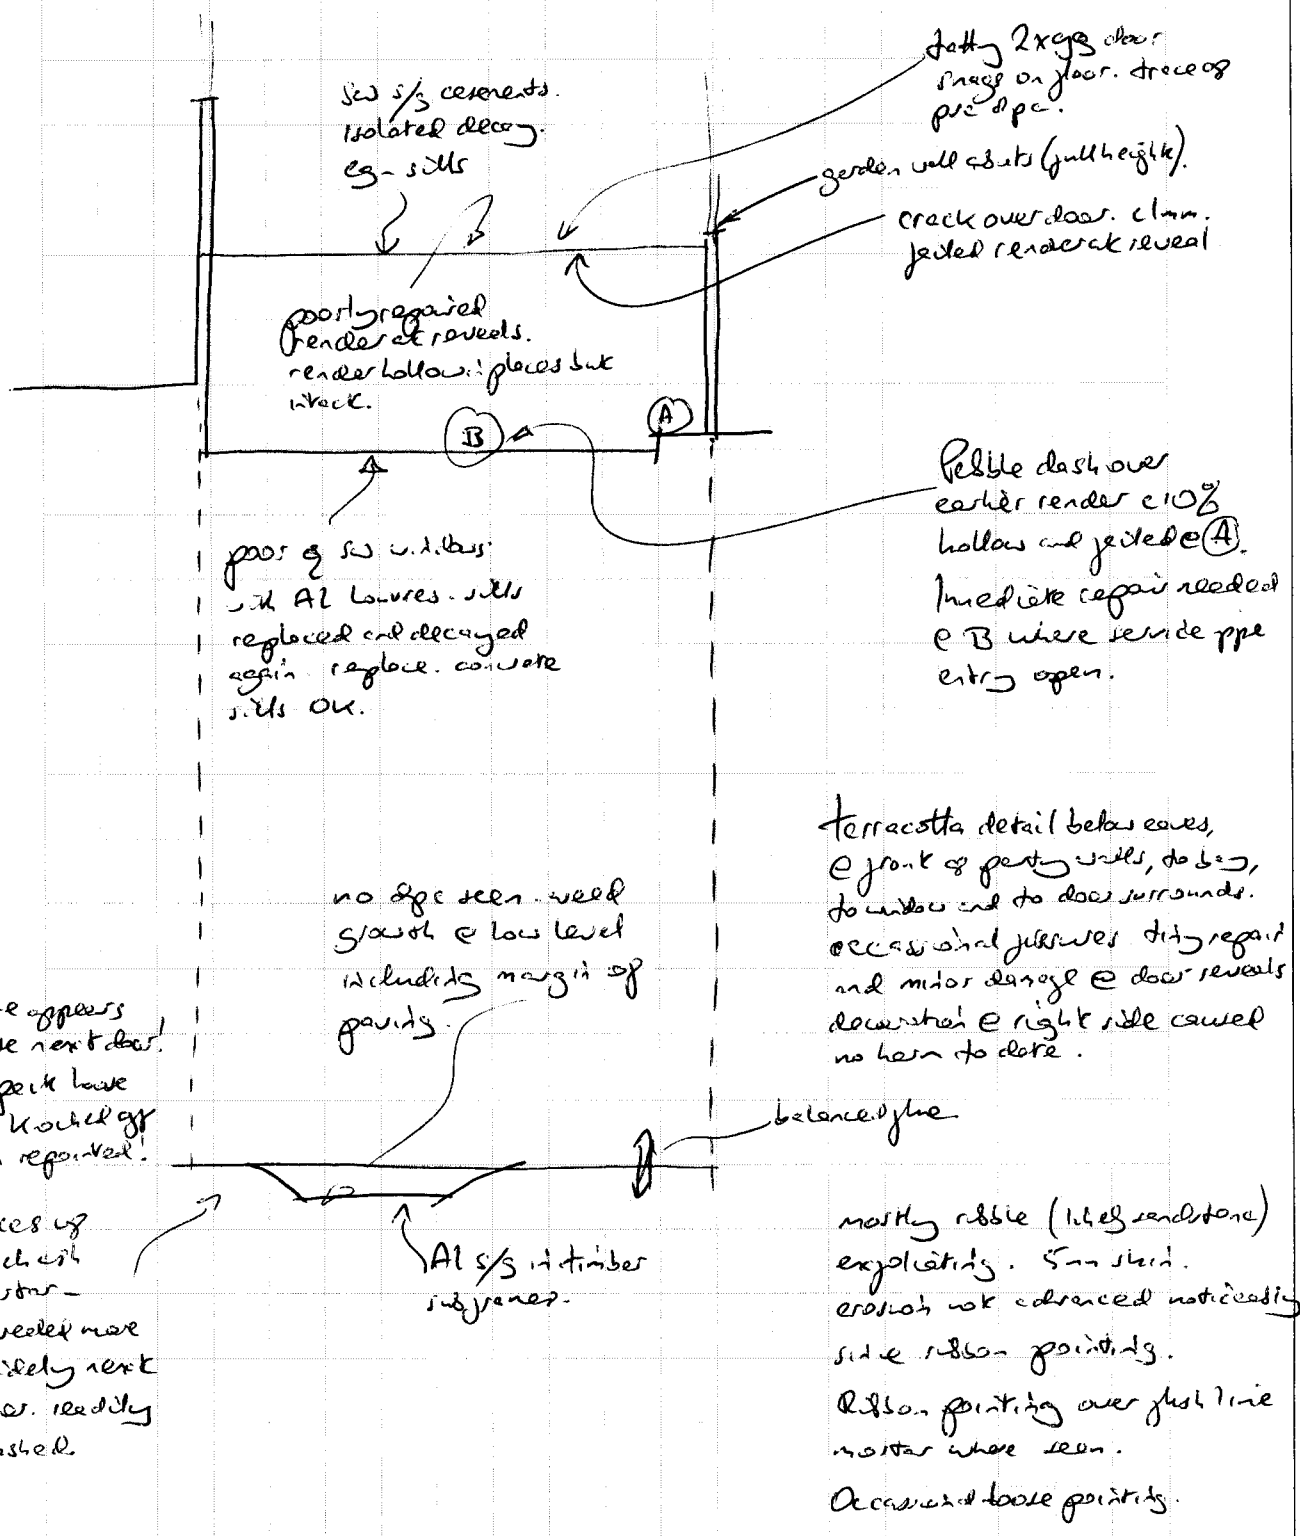 tatty 2xgg door
snags on floor. trace of
pvc dpc.
sw s/g casements.
isolated decay.
eg - sills
garden wall abuts (full height).
crack over door. <1mm.
failed render at reveal
poorly repaired
render at reveals.
render hollow in places but
intact.
A
B
Pebble dash over
earlier render c10%
hollow and failed @ A.
Immediate repair needed
@ B where service pipe
entry open.
poor q sw windows
with Al louvres. sills
replaced and decayed
again. replace. concrete
sills OK.
terracotta detail below eaves,
@ front of party walls, to bay,
to window and to door surrounds.
occassional fissures tiny repair
and minor damage @ door reveals
decoration @ right side caused
no harm to date.
no dpc seen. weed
growth @ low level
including margin of
paving.
e appears
e next door!
have
knocked off
repointed!
balanced flue
Al s/g in timber
subframes.
mostly rubble (likely sandstone)
exfoliating. 5mm skin.
erosion not advanced noticeably
since ribbon pointing.
Ribbon pointing over flush lime
mortar where seen.
Occasional loose pointing.
of
more
next
readily